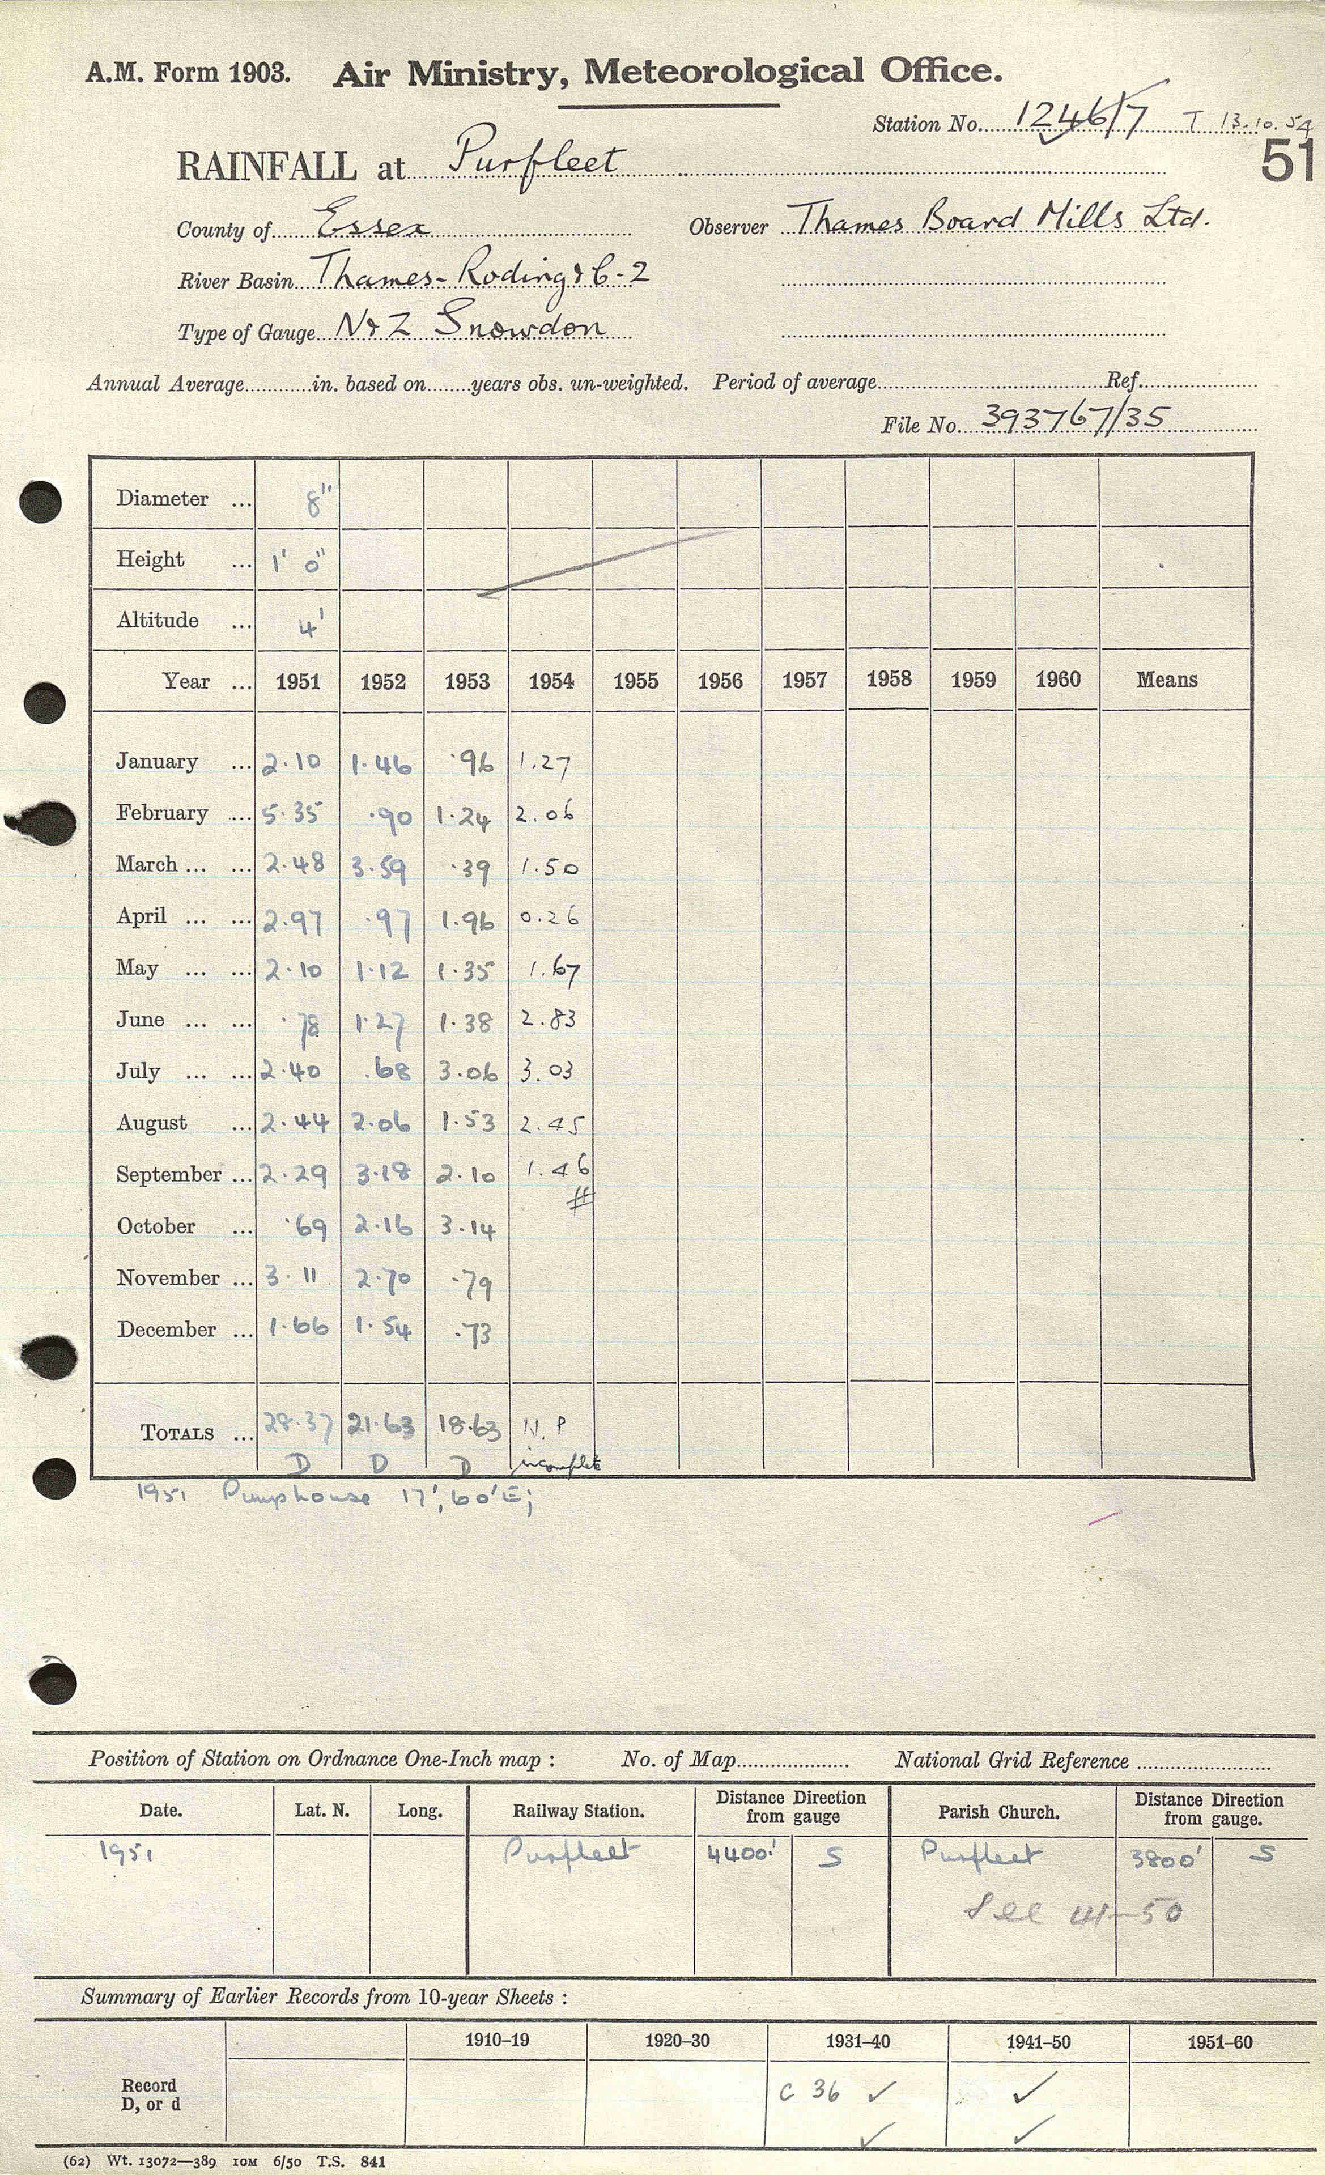 A.M. Form 1903. Air Ministry, Meteorological Office.
Station No. 1246/7 T 13.10.54
51
RAINFALL at Purfleet
County of Essex Observer Thames Board Mills Ltd.
River Basin Thames - Roding & C-2
Type of Gauge N&Z Snowdon
Annual Average in. based on years obs. un-weighted. Period of average Ref.
File No. 393767/35
Diameter ... 8"
Height ... 1' 0"
Altitude ... 4'
Year ... 1951 1952 1953 1954 1955 1956 1957 1958 1959 1960 Means
January ... 2.10 1.46 .96 1.27
February ... 5.35 .90 1.24 2.06
March ... ... 2.48 3.59 .39 1.50
April ... ... 2.97 .97 1.96 0.26
May ... ... 2.10 1.12 1.35 1.67
June ... ... .78 1.27 1.38 2.83
July ... ... 2.40 .68 3.06 3.03
August ... 2.44 2.06 1.53 2.45
September ... 2.29 3.18 2.10 1.46
#
October ... .69 2.16 3.14
November ... 3.11 2.70 .79
December ... 1.66 1.54 .73
TOTALS ... 28.37 21.63 18.63 N.P
D D D incomplete
1951 Pumphouse 17', 60'E;
Position of Station on Ordnance One-Inch map : No. of Map National Grid Reference
Date. Lat. N. Long. Railway Station. Distance Direction from gauge Parish Church. Distance Direction from gauge.
1951 Purfleet 4400' S Purfleet 3800' S
See 41-50
Summary of Earlier Records from 10-year Sheets :
1910–19 1920–30 1931–40 1941–50 1951–60
Record D, or d C 36 ✓ ✓
✓ ✓
(62) Wt. 13072—389 10M 6/50 T.S. 841